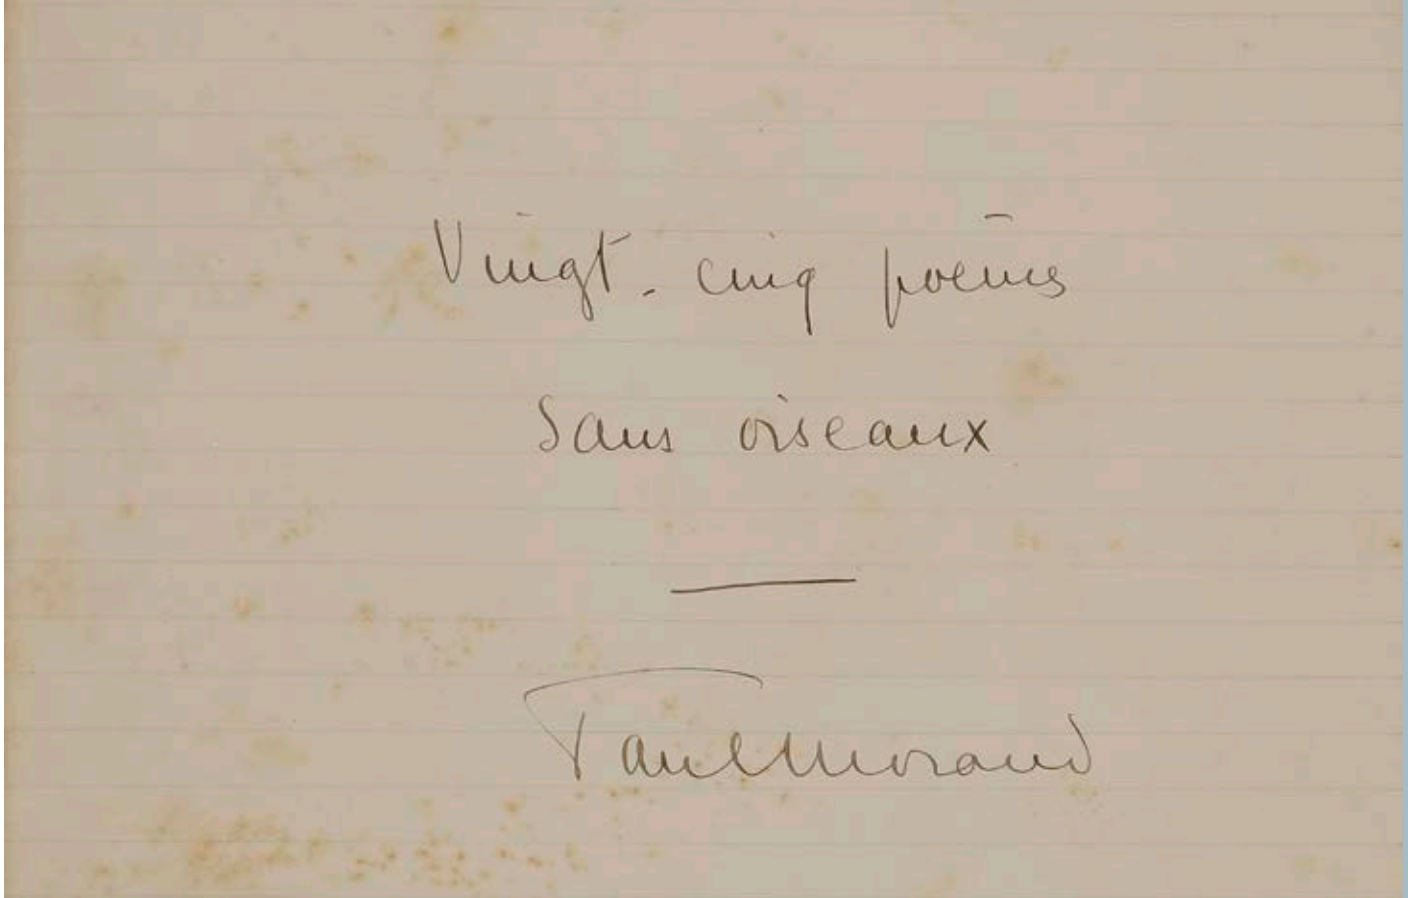 Vingt-cinq poèmes
Sans oiseaux
Paul Morand